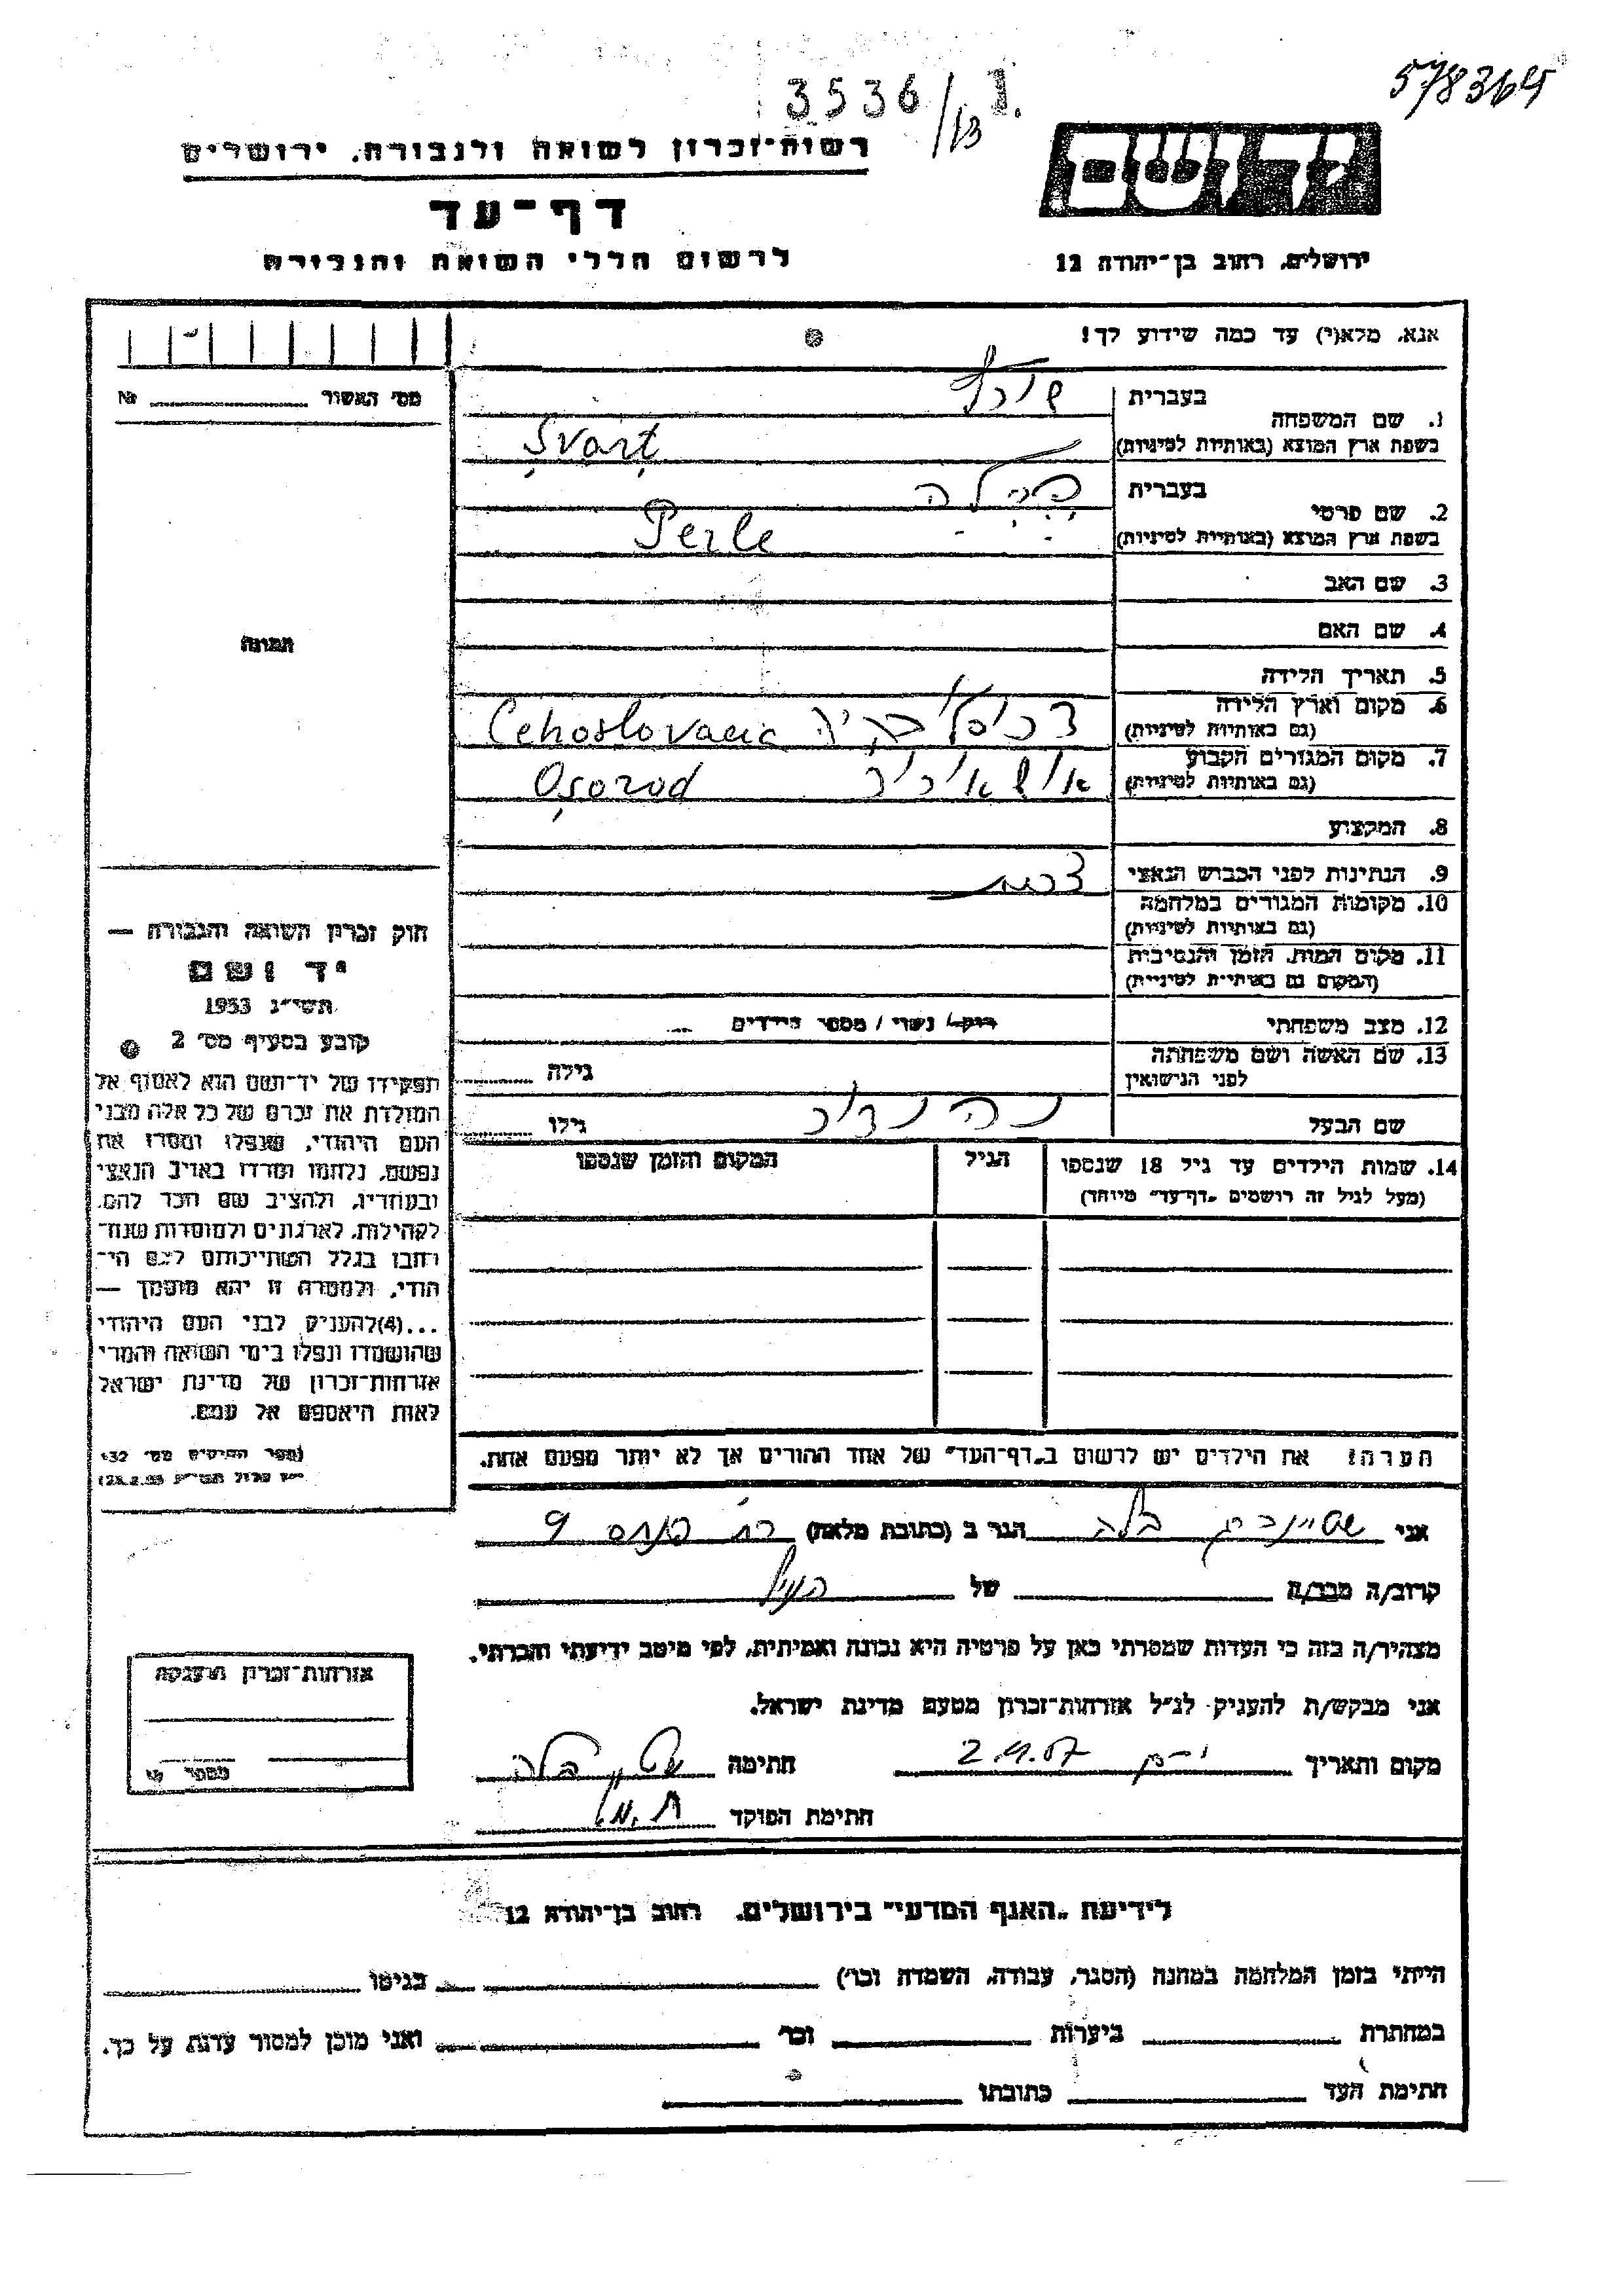 578364
3536/13 I.
יד ושם
רשות-זכרון לשואה ולגבורה, ירושלים
דף-עד
לרשום חללי השואה והגבורה
ירושלים, רחוב בן-יהודה 12
אנא, מלא(י) עד כמה שידוע לך!
מס' האשור № 
1. שם המשפחה
בעברית
בשפת ארץ המוצא (באותיות לטיניות) Şvarţ
2. שם פרטי
בעברית
בשפת ארץ המוצא (באותיות לטיניות) Perle
3. שם האב
4. שם האם
תמונה
5. תאריך הלידה
6. מקום וארץ הלידה
(גם באותיות לטיניות) Cehoslovacia
7. מקום המגורים הקבוע
(גם באותיות לטיניות) Oşorod
8. המקצוע
9. הנתינות לפני הכבוש הנאצי
10. מקומות המגורים במלחמה
(גם באותיות לטיניות)
11. מקום המות, הזמן והנסיבות
(המקום גם באותיות לטיניות)
12. מצב משפחתי רוק / נשוי / מספר הילדים
13. שם האשה ושם משפחתה
לפני הנישואין
גילה
שם הבעל גילו
14. שמות הילדים עד גיל 18 שנספו הגיל המקום והזמן שנספו
(מעל לגיל זה רושמים "דף-עד" מיוחד)
חוק זכרון השואה והגבורה —
יד ושם
תשי"ג 1953
קובע בסעיף מס' 2
תפקידו של יד-ושם הוא לאסוף אל
המולדת את זכרם של כל אלה מבני
העם היהודי, שנפלו ומסרו את
נפשם, נלחמו ומרדו באויב הנאצי
ובעוזריו, ולהציב שם וזכר להם,
לקהילות, לארגונים ולמוסדות שנח-
רבו בגלל השתייכותם לעם הי-
הודי, ולמטרה זו יהא מוסמך —
...(4)להעניק לבני העם היהודי
שהושמדו ונפלו בימי השואה והמרי
אזרחות-זכרון של מדינת ישראל
לאות היאספם אל עמם.
(ספר החוקים מס' 132
הערה! את הילדים יש לרשום ב"דף-העד" של אחד ההורים אך לא יותר מפעם אחת.
אני שטיינברג בלה הגר ב (כתובת מלאה) 9
קרוב/ה מכר/ה של
מצהיר/ה בזה כי העדות שמסרתי כאן על פרטיה היא נכונה ואמיתית, לפי מיטב ידיעתי והכרתי.
אני מבקש/ת להעניק לנ"ל אזרחות-זכרון מטעם מדינת ישראל.
מקום ותאריך 2.4.57 חתימה
חתימת הפוקד
אזרחות-זכרון הוענקה
מספר №
לידיעת "האגף המדעי" בירושלים, רחוב בן-יהודה 12
הייתי בזמן המלחמה במחנה (הסגר, עבודה, השמדה וכו') בגיטו
במחתרת ביערות וכו' ואני מוכן למסור עדות על כך.
חתימת העד כתובתו